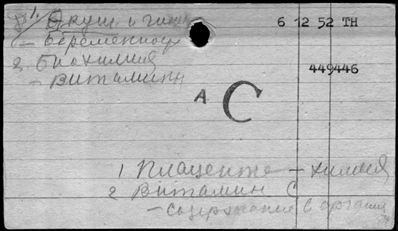 Акуш и гинек 6 12 52 TH
- беременность
2 Биохимия 449446
- витамин
A C
1 Плацента - химия
2 Витамин С
- содержание в органах